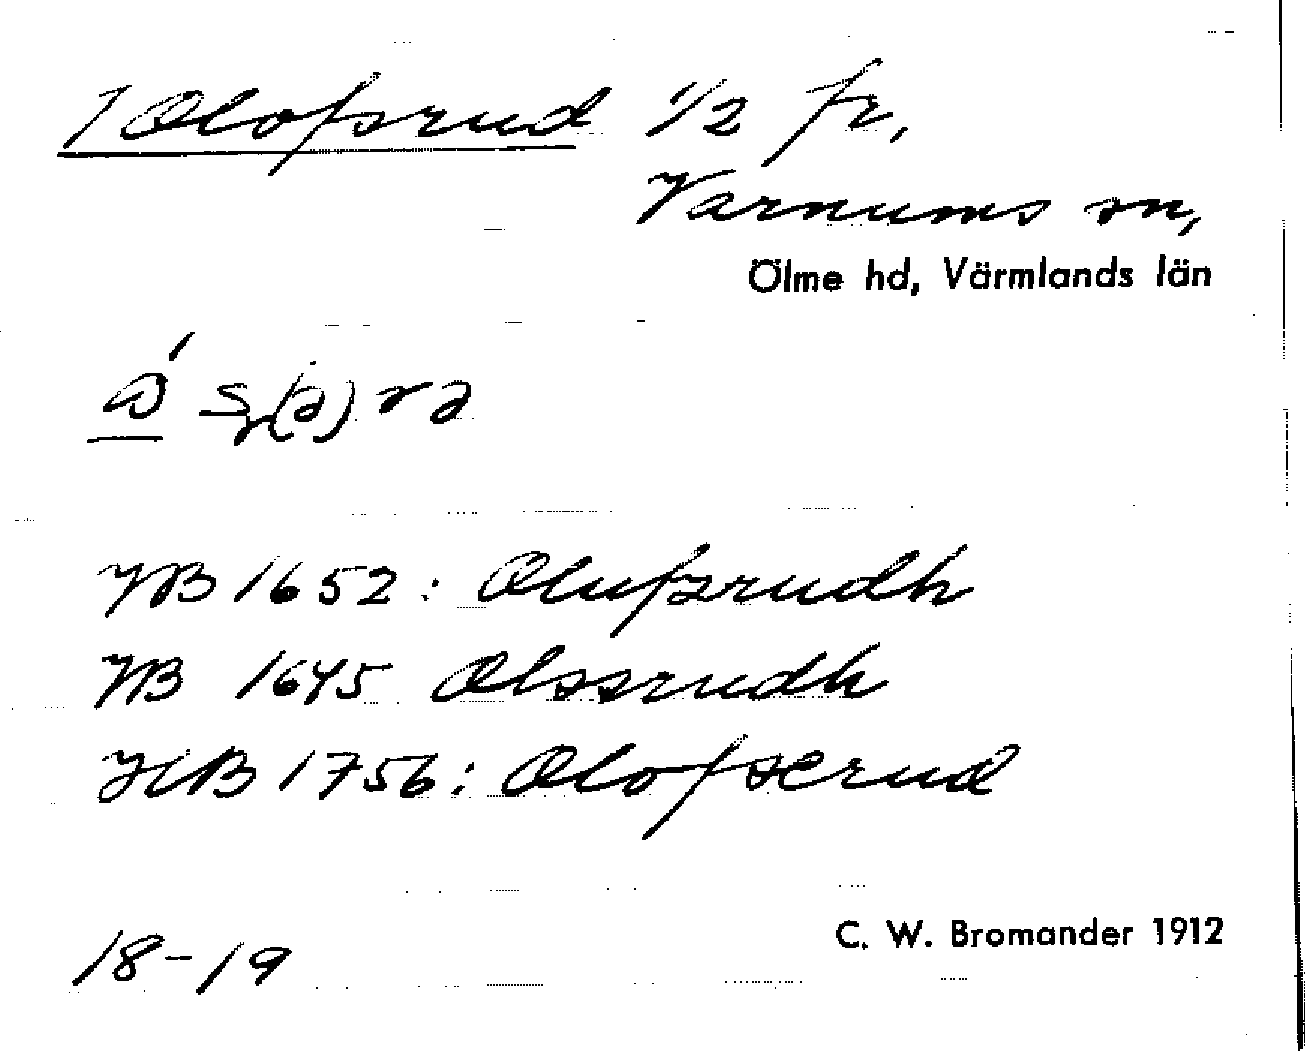 1 Olofsrud 1/2 fr,
Varnums sn,
Ölme hd, Värmlands län
JB 1652: Olufsrudh
JB 1645 Olssrudh
HB 1756: Olofserud
18-19
C. W. Bromander 1912